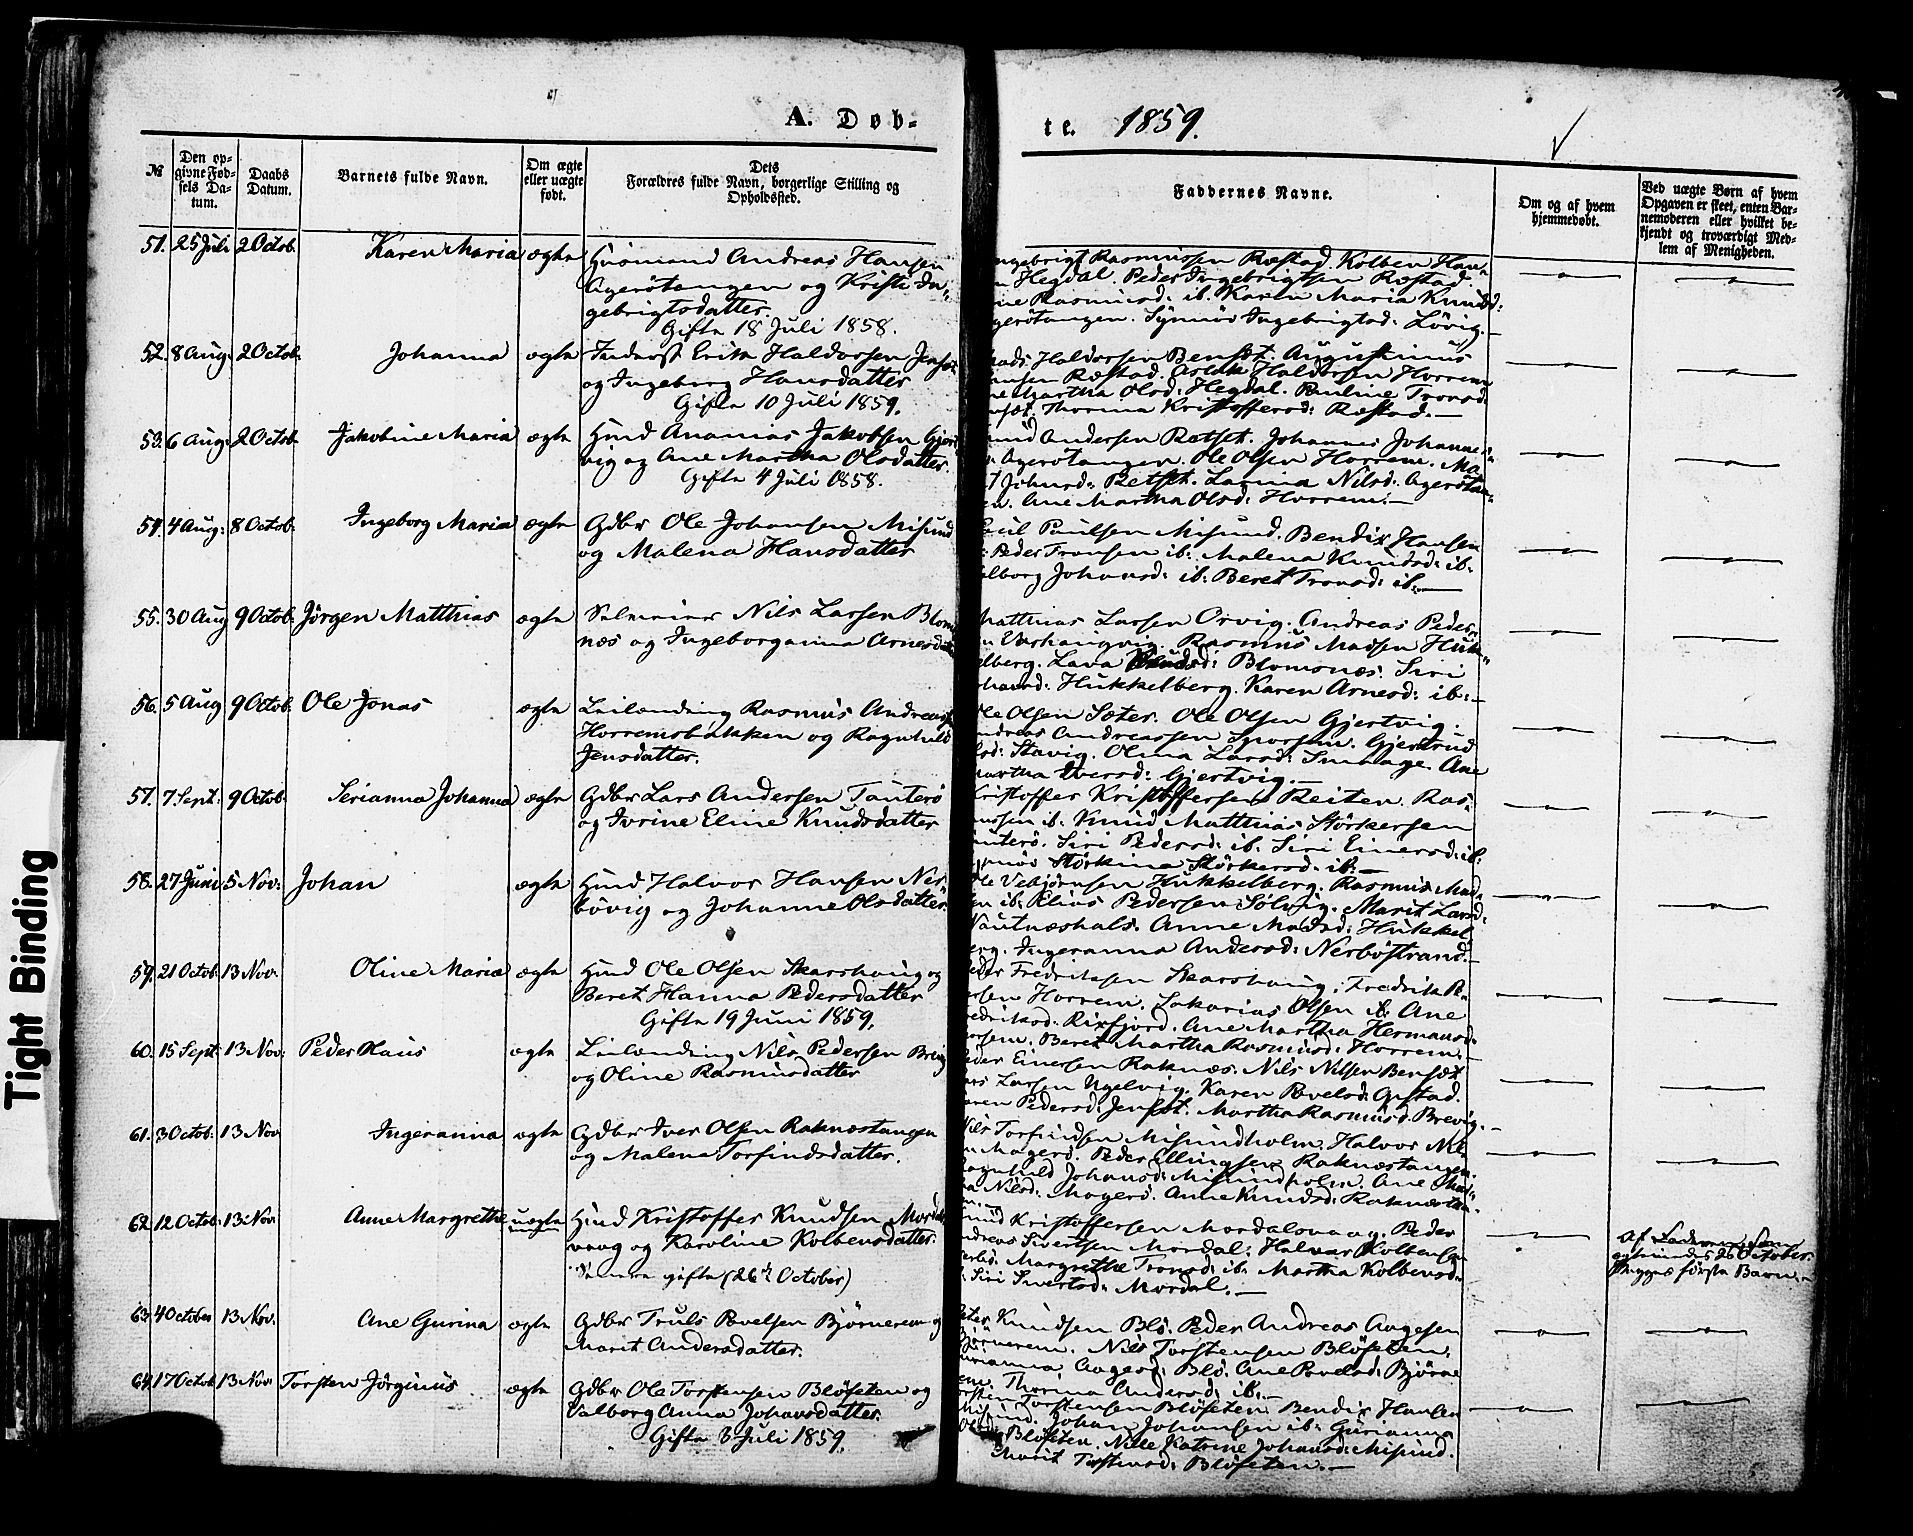 A. Døb-
te. 1859.
№
Den op-
givne Fød-
sels Da-
tum.
Daabs
Datum.
Barnets fulde Navn.
Om ægte
eller uægte
født.
Dets
Forældres fulde Navn, borgerlige Stilling og
Opholdssted.
Faddernes Navne.
Om og af hvem
hjemmedøbt.
Ved uægte Børn af hvem
Opgaven er skeet, enten Bar-
nemoderen eller hvilket be-
kjendt og troværdigt Med-
lem af Menigheden.
51. 25 Juli 2 Octob. Karen Maria ægte Husmand Andreas Hansen
Agerötangen og Kristi In-
gebrigtsdatter.
Gifte 18 Juli 1858.
Rasmussen Røstad. Kolben Han-
Hegdal. Peder Ingebrigtsen Røstad.
Rasmusd: ib. Karen Maria Knudsd:
Agerötangen. Synnöv Ingebrigtsd: Lövig.
52. 8 Aug. 2 Octob. Johanna ægte Inderst Erik Haldorsen
og Ingeborg Hansdatter
Gifte 10 Juli 1859.
Haldorsen Bensæt. Augustinus
Røstad. Haldorsen Horrem
Martha Olsd: Hegdal. Pauline Tronsd:
Thorina Kristoffersd: Røstad.
53. 6 Aug. 2 Octob. Jakobine Maria ægte Hmd Ananias Jakobsen Gjört-
vig og Ane Martha Olsdatter.
Gifte 4 Juli 1858.
Andersen Retset. Johannes Johannes-
Agerötangen. Ole Olsen Horrem.
Johnsd: Retset. Larina Nilsd: Ageröten-
Ane Martha Olsd: Horrem.
54. 4 Aug: 8 Octob. Ingeborg Maria ægte Gdbr Ole Johansen Misund
og Malena Hansdatter
Paulsen Misund. Bendix Hansen
Peder Tronsen ib: Malena Knudsd: ib:
Johansd: ib: Beret Tronsd: ib.
55. 30 Aug 9 Octob. Jörgen Matthias ægte Selveier Nils Larsen Blom-
næs og Ingeborganna Arnesdatter
Matthias Larsen Orvig. Andreas Peder-
Rasmus Madsen Huk-
kelberg. Lava Blomsnæs. Siri
Hukkelberg. Karen Arnesd: ib:
56. 5 Aug 9 Octob. Ole Jonas ægte Leilænding Rasmus Andreassen
Horremsbakken og Ragnhild
Jensdatter.
Ole Olsen Sæter. Ole Olsen Gjertvig.
Andreas Andreassen Gjertrud
Stavig. Olina Larsd: Ane
Martha Iversd: Gjertvig.
57. 7 Sept. 9 Octob. Serianna Johanna ægte Gdbr Lars Andersen Tauterö
og Ivrine Eline Knudsdatter
Kristoffer Kristoffersen Reiten. Ras-
mussen ib. Knud Matthias Störkersen
Tauterö. Siri Pedersd: ib. Siri Einersd: ib:
Störkine Störkersd: ib:
58. 27 Juni 5 Nov: Johan ægte Hmd Halvor Hansen Ner-
bövig og Johanne Olsdatter.
Ole Vebjörnsen Hukkelberg. Rasmus Mad-
sen ib. Elias Pedersen Sölvig. Marit Larsd:
Nautneshals. Anne Madsd: Hukkel-
berg. Ingeranna Andersd: Nerböstrand.
59. 21 Octob. 13 Nov. Oline Maria ægte Hmd Ole Olsen Skarshaug og
Beret Hanna Pedersdatter
Gifte 19 Juni 1859.
Peder Fredriksen Skarshaug. Fredrik Pe-
dersen Horrem. Sakarias Olsen ib. Ane
Fredriksd: Rixfjord. Ane Martha Hermansd:
Horsem. Beret Martha Rasmusd: Horrem.
60. 15 Sept. 13 Nov: Peder Klaus ægte Leilænding Nils Pedersen Brevig
og Oline Rasmusdatter
Peder Einersen Raknæs. Nils Nilsen Bensæt
Lars Larsen Ugelvig. Karen Povelsd: Gustad.
Karen Pedersd: Jenset. Martha Rasmusd: Brevig.
61. 3 Octob. 13 Nov Ingeranna ægte Gdbr Iver Olsen Raknæstangen
og Malena Torfindsdatter.
Nils Torfindsen Misundholm. Halvor Nil-
sen Magerö. Peder Ellingsen Raknæstangen.
Ragnhild Johansd: Misundholm. Ane
Nilsd: Magerö. Anne Knudsd: Raknæstan-
62. 12 Octob: 13 Nov. Anne Margrethe uægte Hmd Kristoffer Knudsen Mordals-
vaag og Karoline Kolbensdatter.
Senere gifte (26de October)
Knud Kristoffersen Mordalsvaag. Peder
Andreas Sivertsen Mordal. Halvor Kolbensen
Margrethe Tronsd: ib. Martha Kolbensd:
Siri Sivertsd: Mordal.
Af Faderen, som
26 October.
Begges förste Barn.
63. 4 October 13 Nov. Ane Gurina ægte Gdbr Truls Povelsen Björnerem og
Marit Andersdatter.
Peter Knudsen Blö. Peder Andreas Aagesen
Björnerem. Nils Torstensen Blöseten.
Gurianna Aagesd: Blö. Ane Povelsd: Björne-
rem. Thorina Andersd: ib.
64. 17 Octob. 13 Nov. Torsten Jörginus ægte Gdbr Ole Torstensen Blöseten og
Valborg Anna Johansdatter.
Gifte 3 Juli 1859.
Torsten Torstensen Blöseten. Bendix Hansen
Misund. Johan Johansen ib: Gurianna
Blöseten. Nille Katrine Johansd: Misund.
Marit Torstensd: Blöseten.
Tight Binding